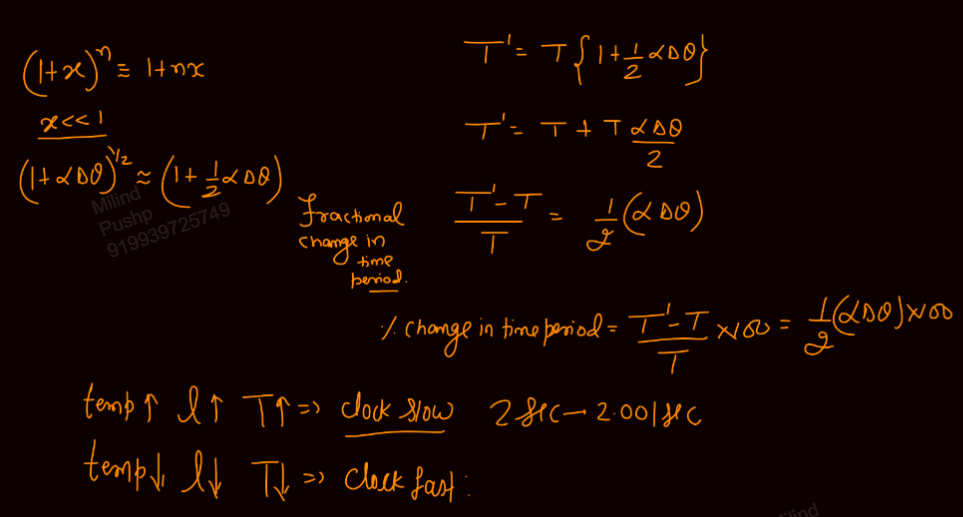 (1+x)ⁿ ≡ 1+nx
x<<1
(1+αΔθ)^1/2 ≈ (1+ 1/2 αΔθ)
Milind
Pushp
919939725749
T' = T{1+ 1/2 αΔθ}
T' = T + T αΔθ/2
fractional
change in
time
period.
T'-T/T = 1/2 (αΔθ)
% change in time period = T'-T/T ×100 = 1/2 (αΔθ)×100
temp↑ l↑ T↑ => clock slow 2 sec – 2.001 sec
temp↓ l↓ T↓ => Clock fast :
Milind